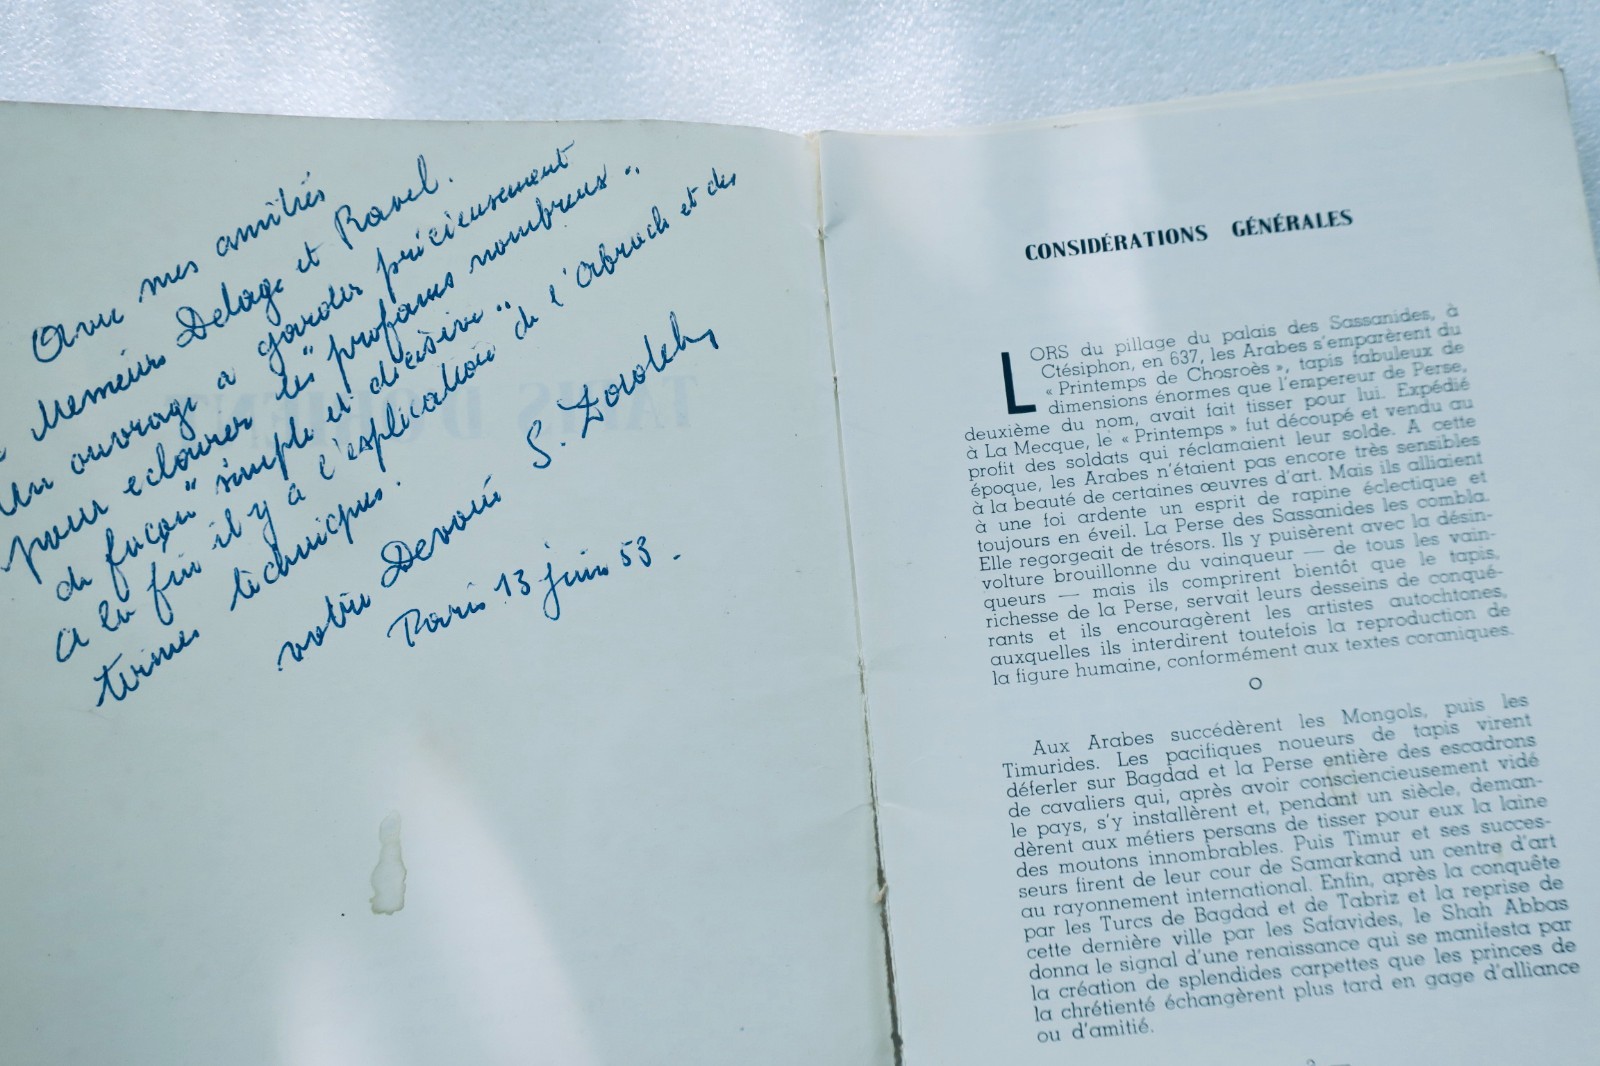 Avec mes amitiés
Messieurs Delage et Ravel.
Un ouvrage a garder précieusement
pour eclairer les "profanes nombreux".
de façon "simple et décisive".
a la fin il y a l'explication de l'Abrach et des
termes techniques.
votre Devoué S.
Paris 13 juin 53.
TAPIS D'ORIENT
CONSIDÉRATIONS GÉNÉRALES
LORS du pillage du palais des Sassanides, à
Ctésiphon, en 637, les Arabes s'emparèrent du
« Printemps de Chosroès », tapis fabuleux de
dimensions énormes que l'empereur de Perse,
deuxième du nom, avait fait tisser pour lui. Expédié
à La Mecque, le « Printemps » fut découpé et vendu au
profit des soldats qui réclamaient leur solde. A cette
époque, les Arabes n'étaient pas encore très sensibles
à la beauté de certaines œuvres d'art. Mais ils alliaient
à une foi ardente un esprit de rapine éclectique et
toujours en éveil. La Perse des Sassanides les combla.
Elle regorgeait de trésors. Ils y puisèrent avec la désin-
volture brouillonne du vainqueur — de tous les vain-
queurs — mais ils comprirent bientôt que le tapis,
richesse de la Perse, servait leurs desseins de conqué-
rants et ils encouragèrent les artistes autochtones,
auxquelles ils interdirent toutefois la reproduction de
la figure humaine, conformément aux textes coraniques.
O
Aux Arabes succédèrent les Mongols, puis les
Timurides. Les pacifiques noueurs de tapis virent
déferler sur Bagdad et la Perse entière des escadrons
de cavaliers qui, après avoir consciencieusement vidé
le pays, s'y installèrent et, pendant un siècle, deman-
dèrent aux métiers persans de tisser pour eux la laine
des moutons innombrables. Puis Timur et ses succes-
seurs firent de leur cour de Samarkand un centre d'art
au rayonnement international. Enfin, après la conquête
par les Turcs de Bagdad et de Tabriz et la reprise de
cette dernière ville par les Safavides, le Shah Abbas
donna le signal d'une renaissance qui se manifesta par
la création de splendides carpettes que les princes de
la chrétienté échangèrent plus tard en gage d'alliance
ou d'amitié.